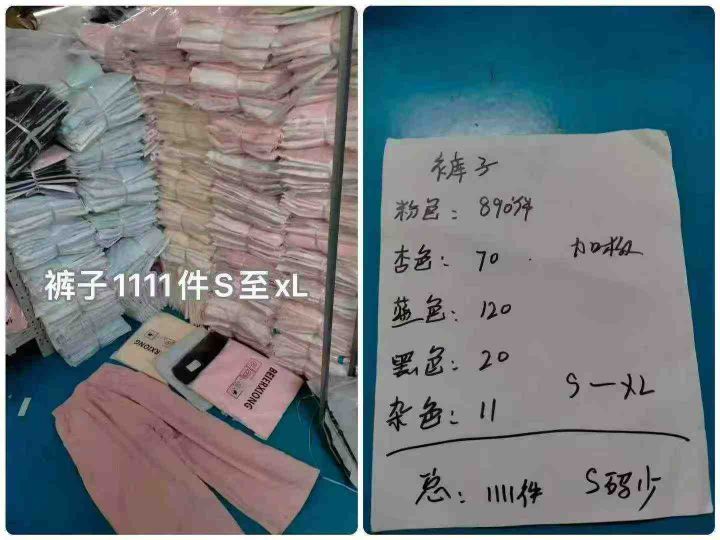 裤子1111件S至xL
BEIERXIONG
BEIERXIONG
裤子
粉色：890件
杏色：70
加极
蓝色：120
黑色：20
S—XL
杂色：11
总：1111件 S码少